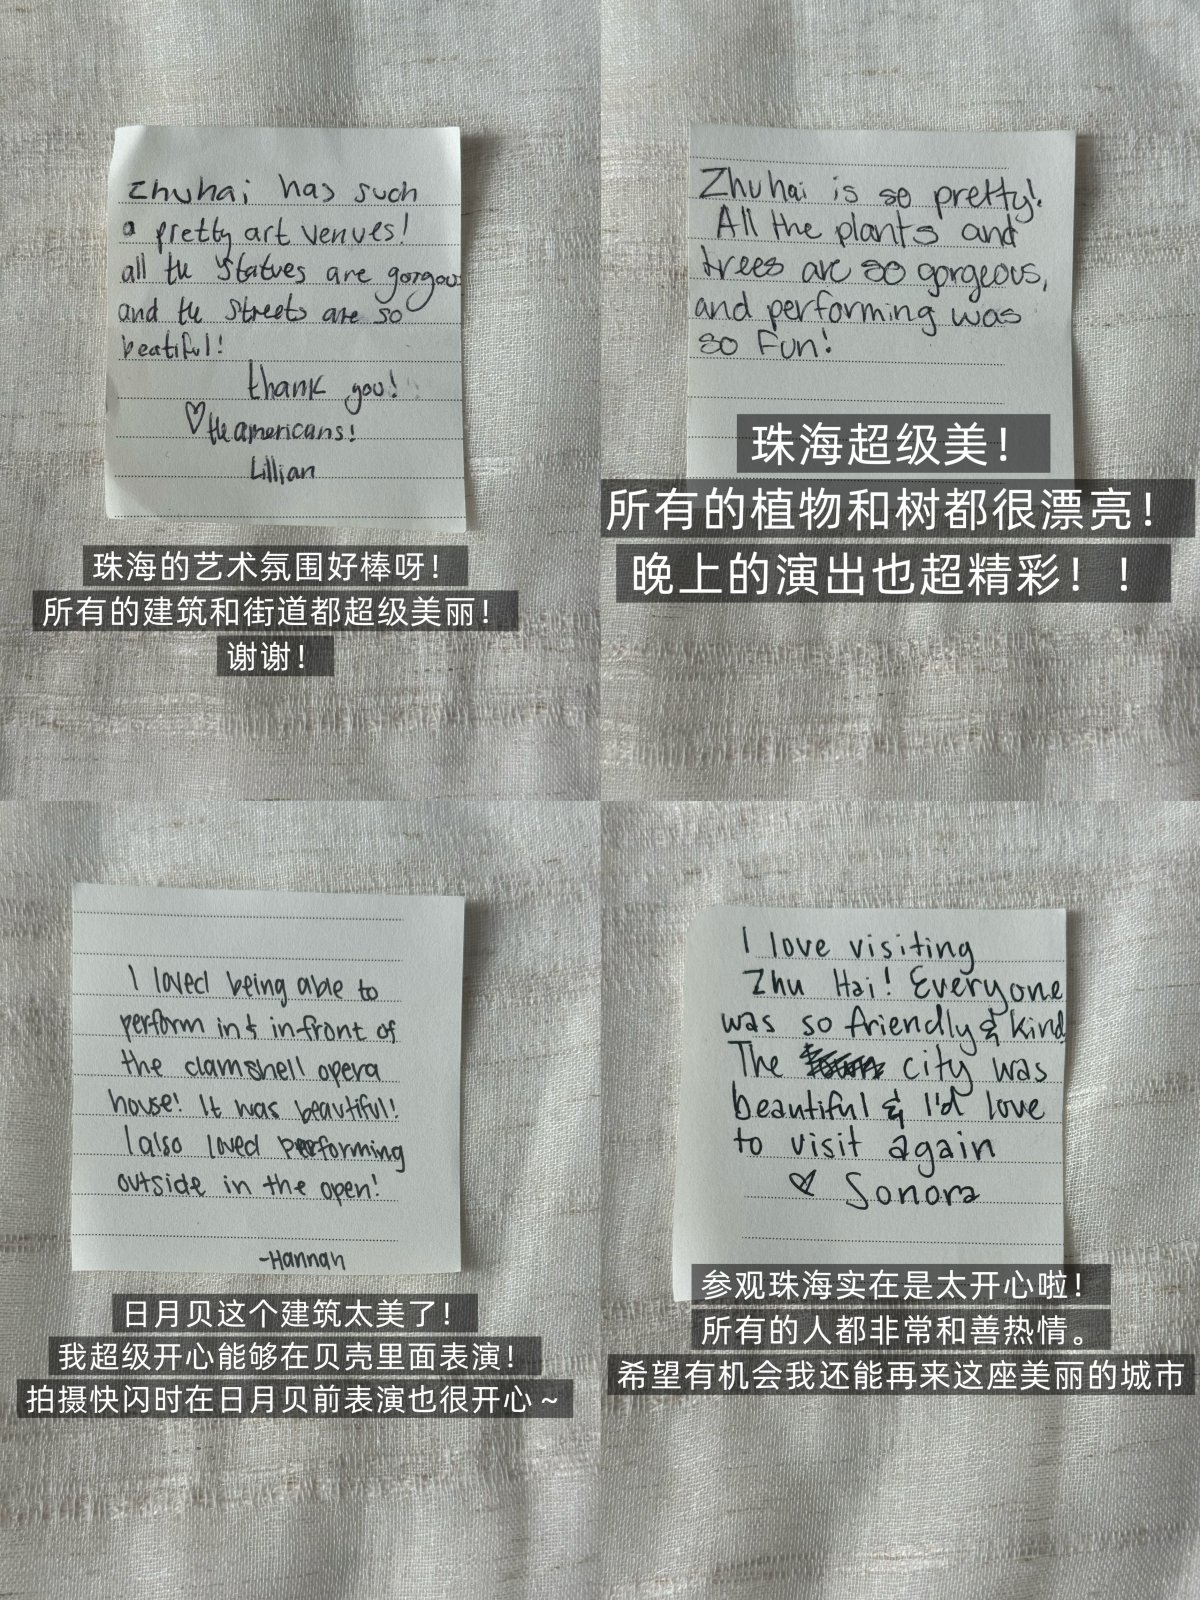 Zhuhai has such
a pretty art venues!
all the statues are gorgous
and the streets are so
beatiful!
thank you!
♡ the americans!
Lillian
珠海的艺术氛围好棒呀！
所有的建筑和街道都超级美丽！
谢谢！
Zhuhai is so pretty!
All the plants and
trees are so gorgeous,
and performing was
so fun!
珠海超级美！
所有的植物和树都很漂亮！
晚上的演出也超精彩！！
I loved being able to
perform in & in-front of
the clamshell opera
house! It was beautiful!
I also loved performing
outside in the open!
-Hannah
日月贝这个建筑太美了！
我超级开心能够在贝壳里面表演！
拍摄快闪时在日月贝前表演也很开心～
I love visiting
Zhu Hai! Everyone
was so friendly & kind
The city was
beautiful & I'd love
to visit again
♡ Sonora
参观珠海实在是太开心啦！
所有的人都非常和善热情。
希望有机会我还能再来这座美丽的城市